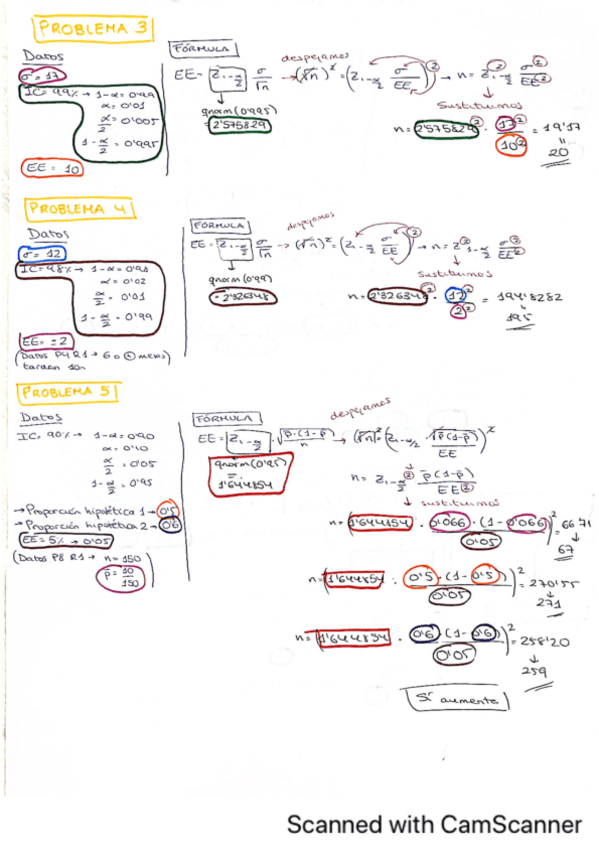 PROBLEMA 3
Datos
σ = 17
IC = 99% → 1-α = 0'99
α = 0'01
α/2 = 0'005
1 - α/2 = 0'995
EE = 10
FÓRMULA
despejamos
EE = Z₁₋α/2 σ/√n → (√n)² = (Z₁₋α/2 σ/EE)² → n = Z²₁₋α/2 σ²/EE²
qnorm(0'995)
= 2'575829
sustituimos
n = 2'575829² · 17²/10² = 19'17
20
PROBLEMA 4
Datos
σ = 12
IC = 98% → 1-α = 0'98
α = 0'02
α/2 = 0'01
1 - α/2 = 0'99
EE = 2
(Datos P4 R1 → 6 o menos)
tardan 10n
FÓRMULA
despejamos
EE = Z₁₋α/2 σ/√n → (√n)² = (Z₁₋α/2 σ/EE)² → n = Z²₁₋α/2 σ²/EE²
qnorm(0'99)
= 2'326348
sustituimos
n = 2'326348² · 12²/2² = 194'8282
195
PROBLEMA 5
Datos
IC, 90% → 1-α = 0'90
α = 0'10
α/2 = 0'05
1 - α/2 = 0'95
→ Proporción hipotética 1 → 0'5
→ Proporción hipotética 2 → 0'6
EE = 5% → 0'05
(Datos P8 R1 → n = 150)
p̄ = 10/150
FÓRMULA
despejamos
EE = Z₁₋α/2 · √(p̄·(1-p̄)/n) → (√n)² = (Z₁₋α/2 √(p̄(1-p̄))/EE)²
qnorm(0'95)
=
1'644854
n = Z₁₋α/2² p̄(1-p̄)/EE²
sustituimos
n = (1'644854 · 0'066 · (1-0'066)/0'05)² = 66'71
67
n = (1'644854 · 0'5 · (1-0'5)/0'05)² = 270'55
271
n = (1'644854 · 0'6 · (1-0'6)/0'05)² = 258'20
259
Sí aumenta
Scanned with CamScanner